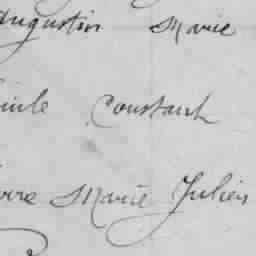 Augustin Marie
Constant
Marie Julien